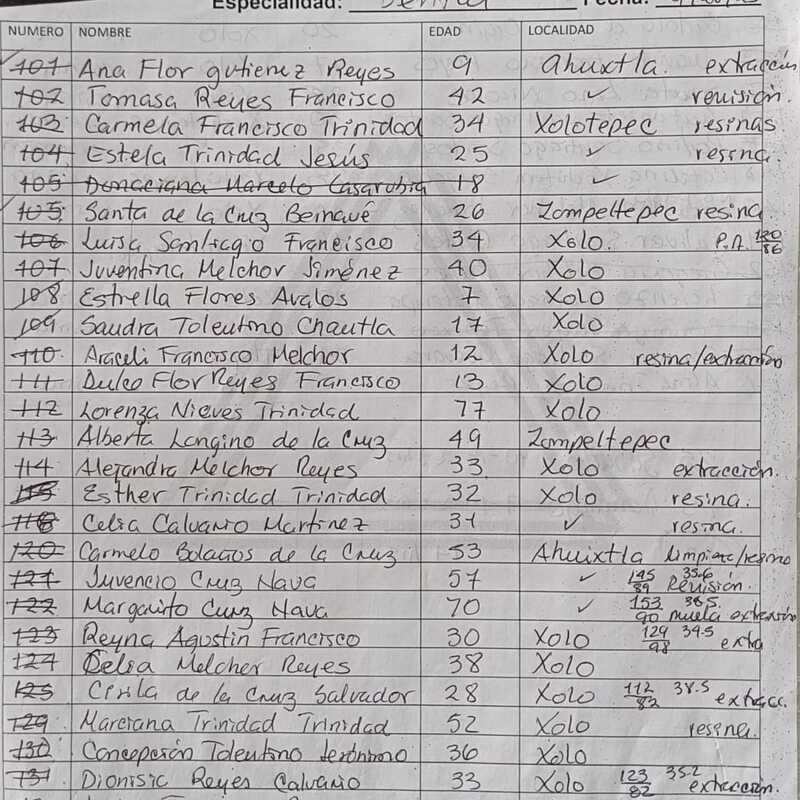 Especialidad: Dental Fecha:
NUMERO NOMBRE EDAD LOCALIDAD
101 Ana Flor gutierrez Reyes 9 Ahuixtla. extracción
102 Tomasa Reyes Francisco 42 ✓ revisión.
103 Carmela Francisco Trinidad 34 Xolotepec resinas
104 Estela Trinidad Jesús 25 ✓ resina.
105 Donaciana Marcelo Casarubia 18 ✓
105 Santa de la Cruz Bernavé 26 Zompeltepec resina
106 Luisa Santiagio Francisco 34 Xolo. P.A. 120/86
107 Juventina Melchor Jiménez 40 Xolo
108 Estrella Flores Avalos 7 Xolo
109 Sandra Tolentino Chautla 17 Xolo
110 Araceli Francisco Melchor 12 Xolo resina/extracción
111 Dulce Flor Reyes Francisco 13 Xolo
112 Lorenza Nieves Trinidad 77 Xolo
113 Alberta Longino de la Cruz 49 Zompeltepec
114 Alejandra Melchor Reyes 33 Xolo extracción.
115 Esther Trinidad Trinidad 32 Xolo resina.
118 Celia Calvario Martinez 31 ✓ resina.
120 Carmelo Bolaños de la Cruz 53 Ahuixtla limpieza/resina
121 Juvencio Cruz Nava 57 ✓ 145/89 35.6 Revisión.
122 Margarito Cruz Nava 70 ✓ 153/90 38.5. muela extensión
123 Reyna Agustin Francisco 30 Xolo 129/98 34.5 extra
124 Celia Melcher Reyes 38 Xolo
125 Cirila de la Cruz Salvador 28 Xolo 112/82 38.5 extracc.
129 Marciana Trinidad Trinidad 52 Xolo resina.
130 Concepción Tolentino Jerónimo 36 Xolo
131 Dionisic Reyes Calvario 33 Xolo 123/82 35.2 extracción.